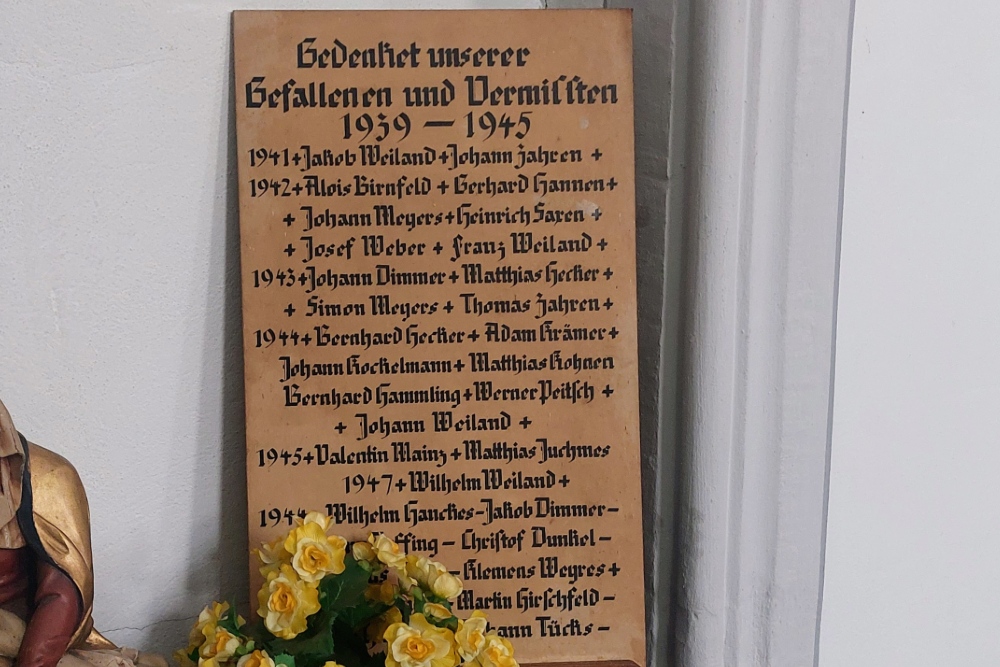 Gedenket unserer
Gefallenen und Vermissten
1939 — 1945
1941+Jakob Weiland+Johann Zahren +
1942+Alois Birnfeld + Gerhard Hannen+
+ Johann Meyers+Heinrich Saxen +
+ Josef Weber + Franz Weiland +
1943+Johann Dimmer+ Matthias Hecker +
+ Simon Meyers + Thomas Zahren+
1944+Bernhard Hecker+ Adam Krämer+
Johann Kockelmann+ Matthias Kohnen
Bernhard Hammling+Werner Peitsch +
+ Johann Weiland +
1945+Valentin Mainz+Matthias Juchmes
1947+Wilhelm Weiland+
1944 Wilhelm Hanckes-Jakob Dimmer-
– Christof Dunkel –
-Klemens Weyres+
-Martin Hirschfeld –
Tücks –